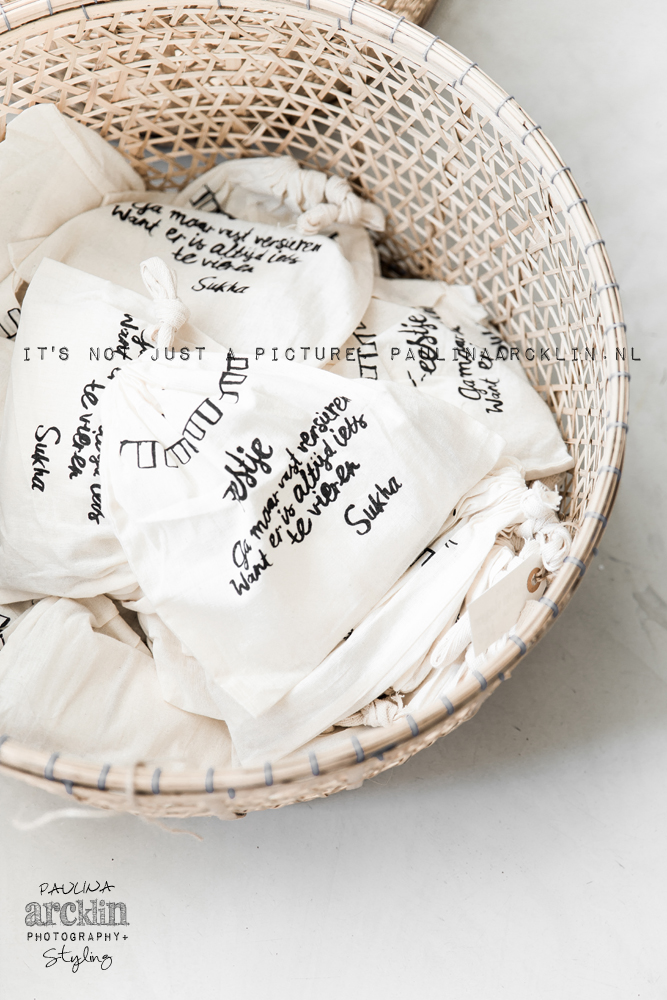 Ga maar vast versieren
Want er is altijd iets
te vieren
Sukha
Feestje
Ga maar
Want er
te vieren
Sukha
IT'S NOT JUST A PICTURE! PAULINAARCKLIN.NL
estje
Ga maar vast versieren
Want er is altijd iets
te vieren
Sukha
PAULINA
arcklin
PHOTOGRAPHY+
Styling